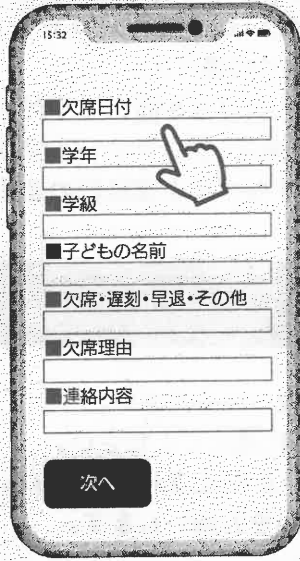 15:32
■欠席日付
■学年
■学級
■子どもの名前
■欠席・遅刻・早退・その他
■欠席理由
■連絡内容
次へ